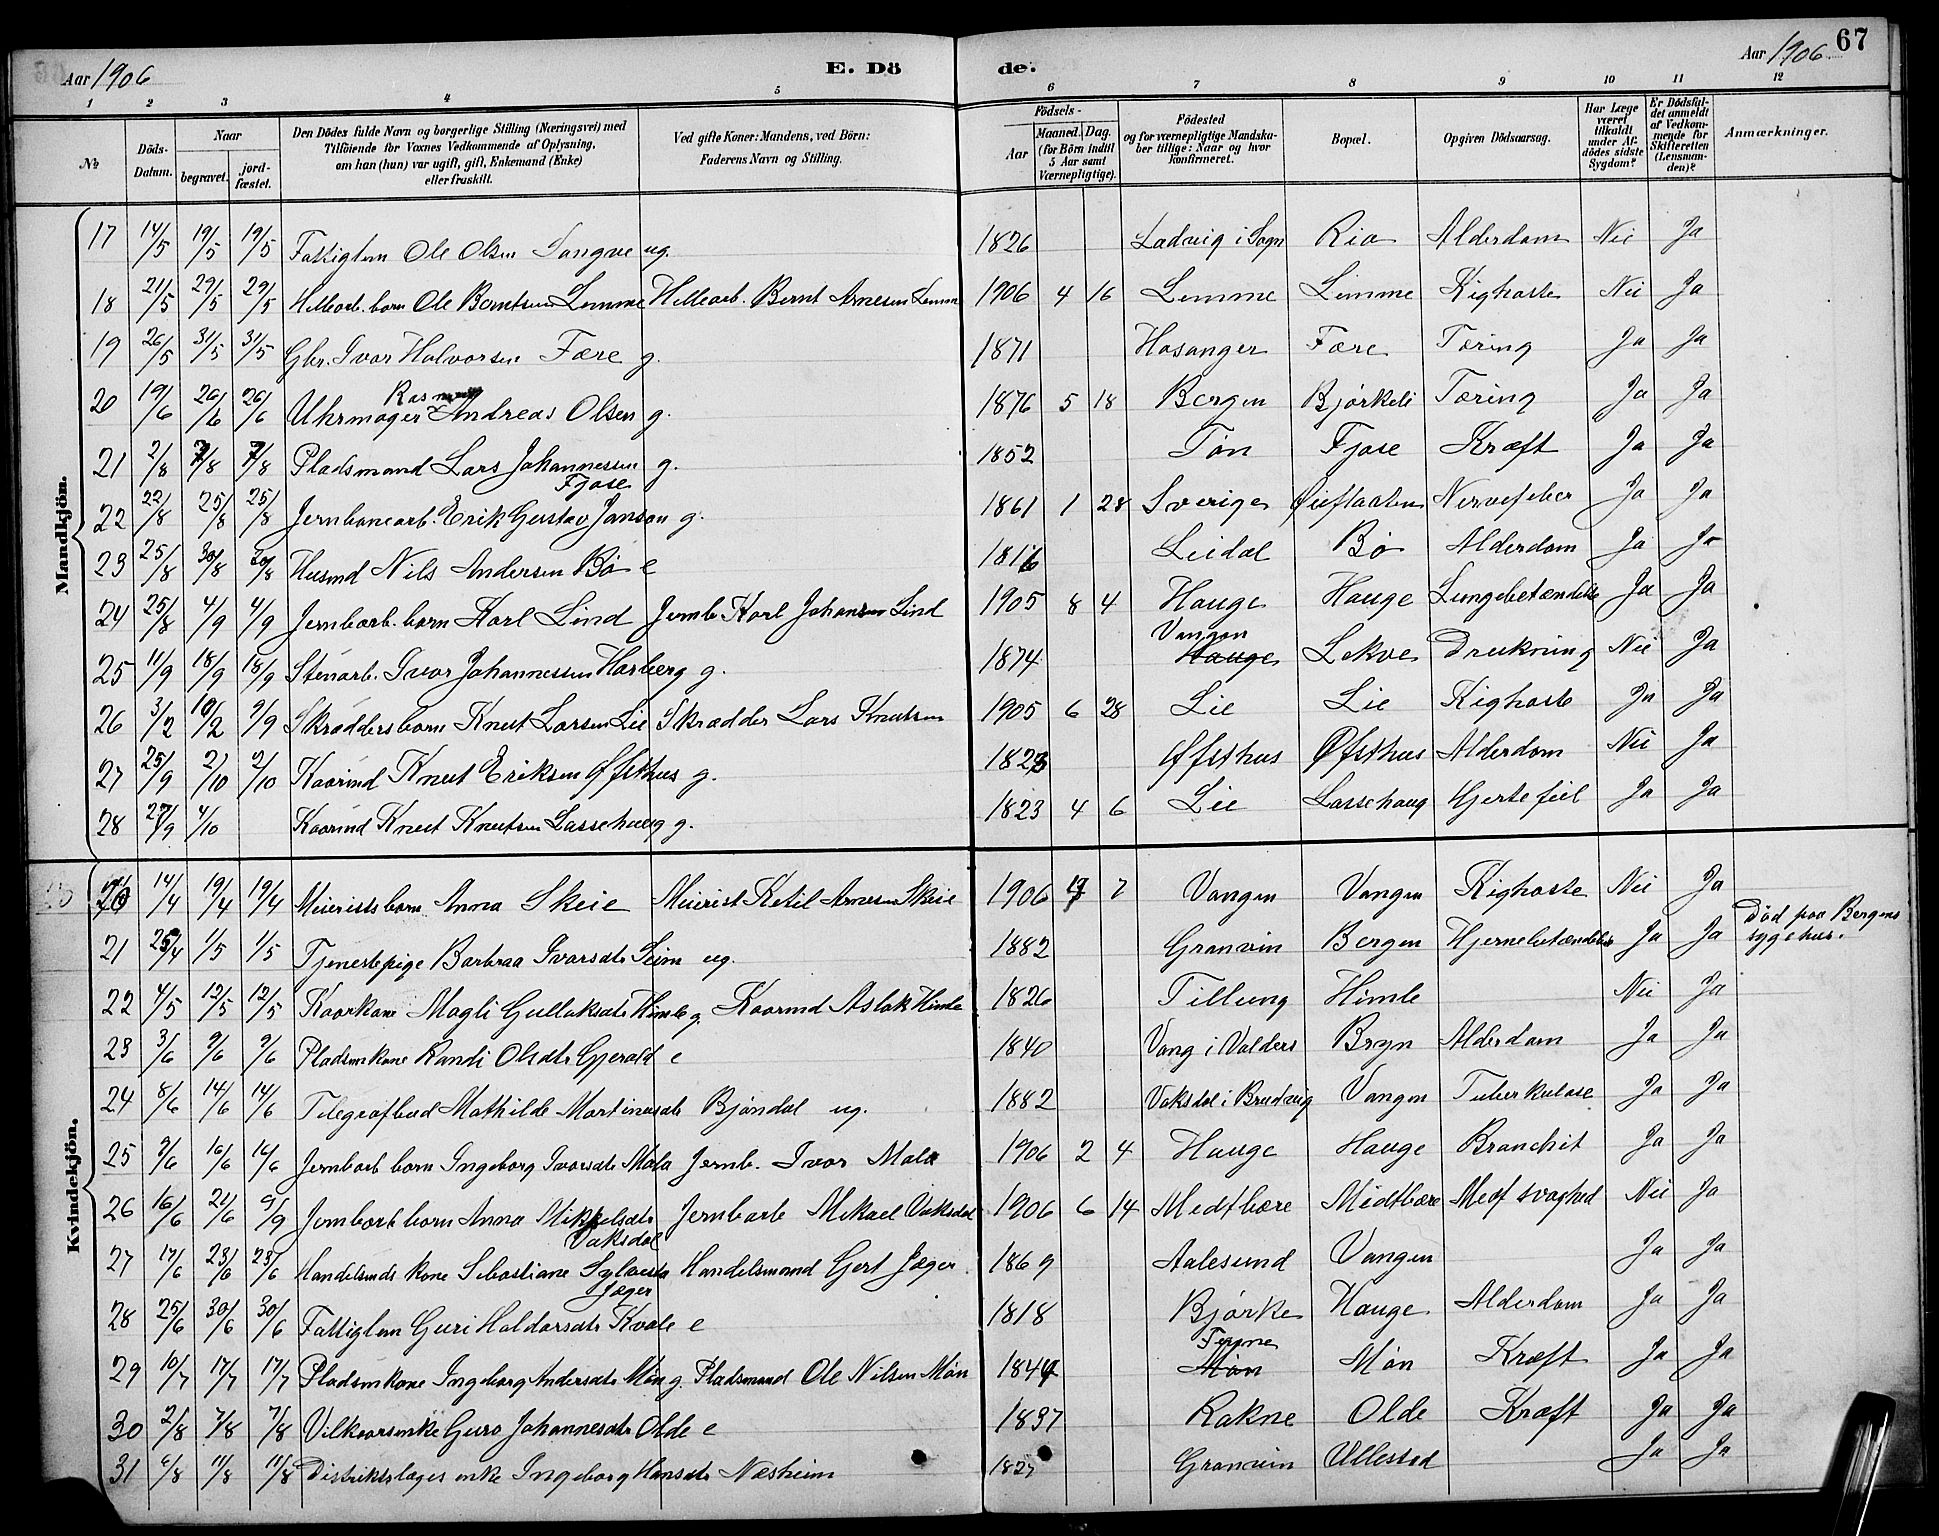 Aar 1906 E. Dö de. Aar 1906. 67
1 2 3 4 5 6 7 8 9 10 11 12
№ Döds-Datum. Naar begravet. jord-fæstet. Den Dödes fulde Navn og borgerlige Stilling (Næringsvei) med Tilföiende for Voxnes Vedkommende af Oplysning, om han (hun) var ugift, gift, Enkemand (Enke) eller fraskilt. Ved gifte Koner: Mandens, ved Börn: Faderens Navn og Stilling. Födsels- Aar Maaned. Dag. (for Börn indtil 5 Aar samt Værnepligtige). Födested og for værnepligtige Mandskaber tillige: Naar og hvor konfirmeret. Bopæl. Opgiven Dödsaarsag. Har Læge været tilkaldt under Afdödes sidste Sygdom? Er Dödsfaldet anmeldt af Vedkommende for Skifteretten (Lensmanden)? Anmærkninger.
Mandkjön.
17 14/5 19/5 19/5 Fattiglem Ole Olsen Sangve ug. 1826 Ladvig i Sogn Rio Alderdom Nei Ja
18 21/5 29/5 29/5 Hellearb. barn Ole Berntsen Lemme Hellearb. Bernt Arnesen Lemm 1906 4 16 Lemme Lemme Kighoste Nei Ja
19 26/5 31/5 31/5 Gbr. Ivar Halvorsen Fære g. 1871 Hosanger Fære Tæring Ja Ja
20 19/6 26/6 26/6 Uhrmager Rasmus Andreas Olsen g. 1876 5 18 Bergen Bjørkeli Tæring Ja Ja
21 2/8 7/8 7/8 Pladsmand Lars Johannessen Fjose g. 1852 Tøn Fjose Kræft Ja Ja
22 22/8 25/8 25/8 Jernbanearb. Erik Gustav Janson g. 1861 1 28 Sverige Øieflaaten Nervefeber Ja Ja
23 25/8 30/8 30/8 Husmd Nils Andersen Bø e 1816 Leidal Bø Alderdom Ja Ja
24 25/8 4/9 4/9 Jernbarb. barn Karl Lind Jernb. Karl Johansen Lind 1905 8 4 Hauge Hauge Lungebetændelse Ja Ja
25 11/9 18/9 18/9 Stenarb. Ivar Johannessen Harberg g. 1874 Vangen Hauge Lekve Drukning Nei Ja
26 3/2 10/2 9/9 Skræddersbarn Knut Larsen Lie Skrædder Lars Knutsen 1905 6 28 Lie Lie Kighoste Ja Ja
27 25/9 2/10 2/10 Kaarmd Knut Eriksen Øfsthus g. 1823 Øfsthus Øfsthus Alderdom Nei Ja
28 27/9 4/10 Kaarmd Knut Knutsen Lassehaug g. 1823 4 6 Lie Lassehaug Hjertefeil Ja Ja
Kvindekjön.
20 14/4 19/4 19/4 Meieristsbarn Anna Skeie Meierist Ketil Arnesen Skeie 1906 7 Vangen Vangen Kighoste Nei Ja
21 25/4 1/5 1/5 Tjenestepige Barbraa Ivarsdtr Seim ug. 1882 Granvin Bergen Hjernebetændelse Ja Ja Død paa Bergens sygehus.
22 4/5 12/5 12/5 Kaarkone Magli Gullaksdtr Himle g. Kaarmd Aslak Himle 1826 Tillung Himle Nei Ja
23 3/6 9/6 9/6 Pladsmkone Randi Olsdtr Gjerald e 1840 Vang i Valders Bryn Alderdom Ja Ja
24 8/6 14/6 14/6 Telegrafbud Mathilde Martinusdtr Bjøndal ug. 1882 Vaksdal i Bruvig Vangen Tuberkulose Ja Ja
25 9/6 16/6 16/6 Jernbarb barn Ingeborg Ivarsdtr Mala Jernb. Ivar Mala 1906 2 4 Hauge Hauge Bronchit Ja Ja
26 16/6 21/6 9/9 Jernbarb barn Anna Mikkelsdtr Vaksdal Jernbarb Mikael Vaksdal 1906 6 14 Medtbære Midtbære Medf svaghed Nei Ja
27 17/6 23/6 23/6 Handelsmds kone Sebastiane Sylvesta Jæger Handelsmand Gert Jæger. 1869 Aalesund Vangen Ja Ja
28 25/6 30/6 30/6 Fattiglem Guri Haldorsdtr Kvale e 1818 Bjørke Hauge Alderdom Ja Ja
29 10/7 17/7 17/7 Pladsmkone Ingeborg Andersdtr Møn g. Pladsmand Ole Nilsen Møn 1844 Tegne Møn Møn Kræft Ja Ja
30 2/8 7/8 7/8 Vilkaarsenke Guro Johannesdtr Olde e 1837 Rokne Olde Kræft Ja Ja
31 6/8 11/8 11/8 Distriktslæges enke Ingeborg Hansdtr Næsheim 1827 Granvin Ullestad Ja Ja